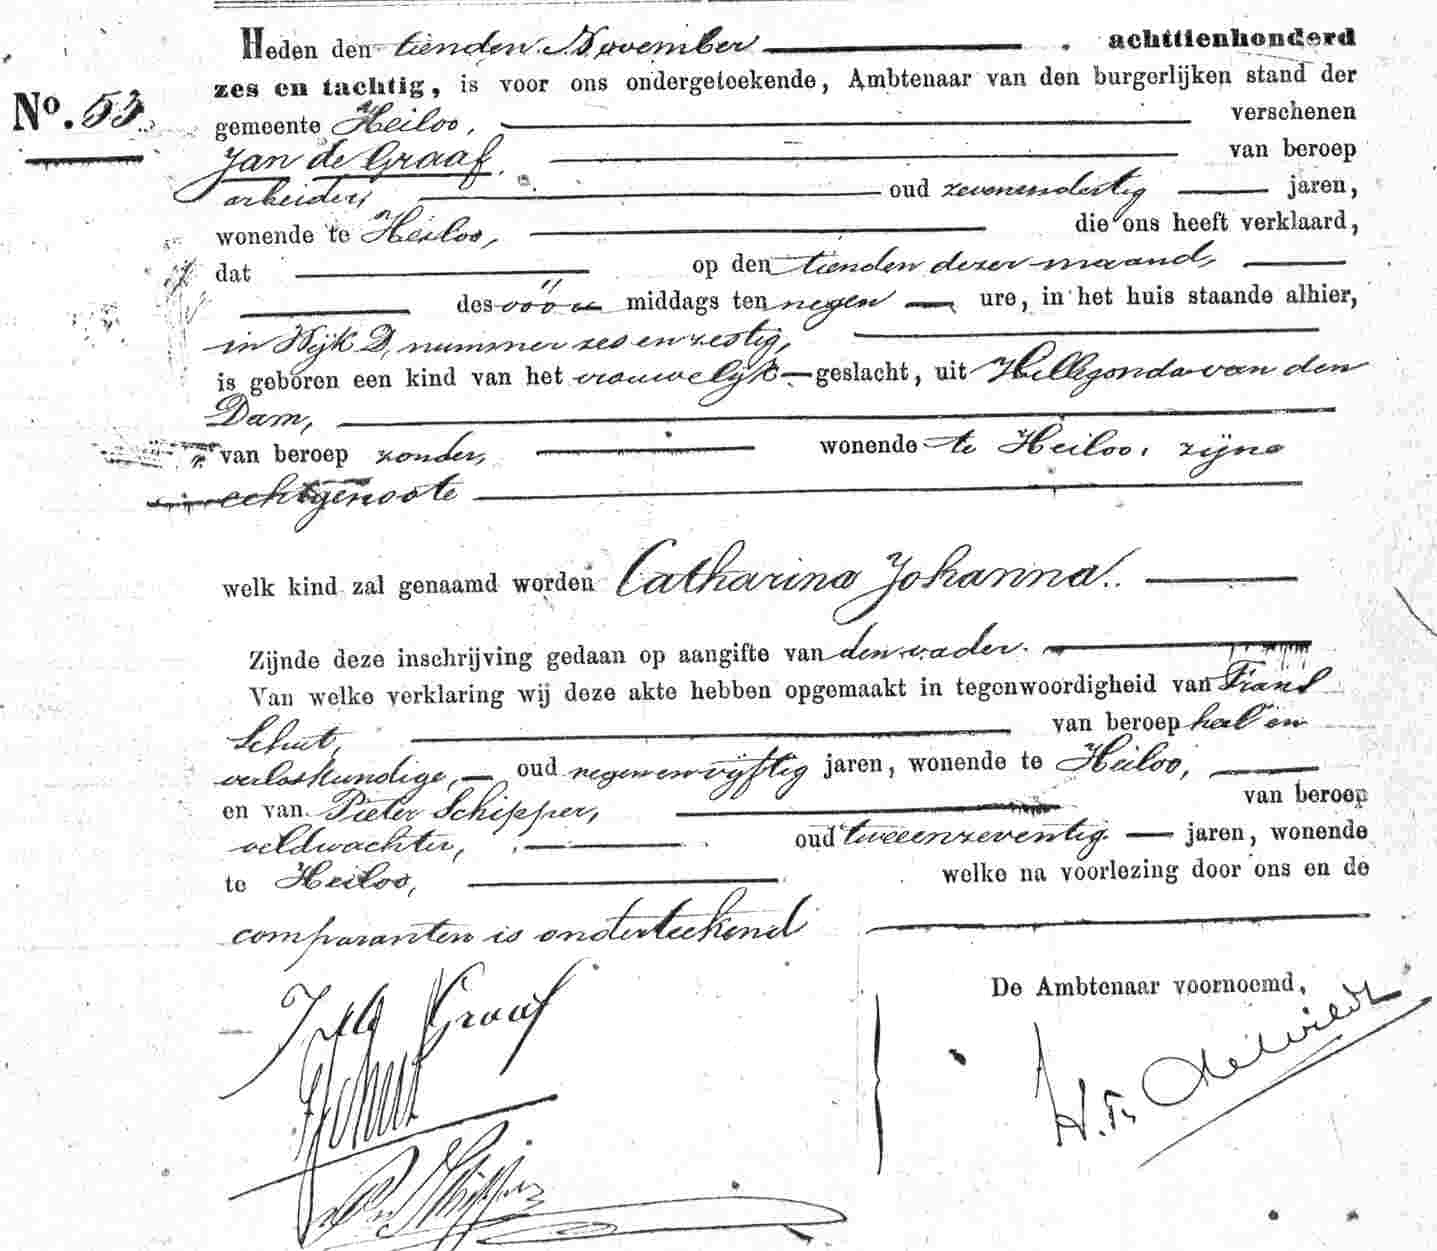 Heden den tienden November achttienhonderd
No. 53. zes en tachtig, is voor ons ondergeteekende, Ambtenaar van den burgerlijken stand der
gemeente Heiloo, verschenen
Jan de Graaf, van beroep
arbeider, oud zevenendertig jaren,
wonende te Heiloo, die ons heeft verklaard,
dat op den tienden dezer maand,
des vóór middags ten negen ure, in het huis staande alhier,
in Wijk D, nummer zes en zestig,
is geboren een kind van het vrouwelijk geslacht, uit Hillegonda van den
Dam,
van beroep zonder, wonende te Heiloo, zijne
echtgenoote
welk kind zal genaamd worden Catharina Johanna.
Zijnde deze inschrijving gedaan op aangifte van den vader.
Van welke verklaring wij deze akte hebben opgemaakt in tegenwoordigheid van Frans
Schut, van beroep heel en
verloskundige, oud negenenvijftig jaren, wonende te Heiloo,
en van Pieter Schipper, van beroep
veldwachter, oud tweeenzeventig jaren, wonende
te Heiloo, welke na voorlezing door ons en de
comparanten is onderteekend
De Ambtenaar voornoemd,
J de Graaf
F Schut
P Schipper